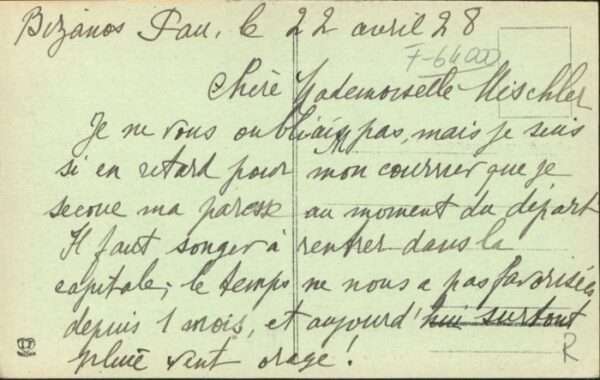 Bizanos Pau, le 22 avril 28
F-64000
Chère Mademoiselle Mischler
Je ne vous oubliais pas, mais je suis
si en retard pour mon courrier que je
secoue ma paresse au moment du départ
Il faut songer à rentrer dans la
capitale; le temps ne nous a pas favorisées
depuis 1 mois, et aujourd'hui surtout
pluie vent orage!
R